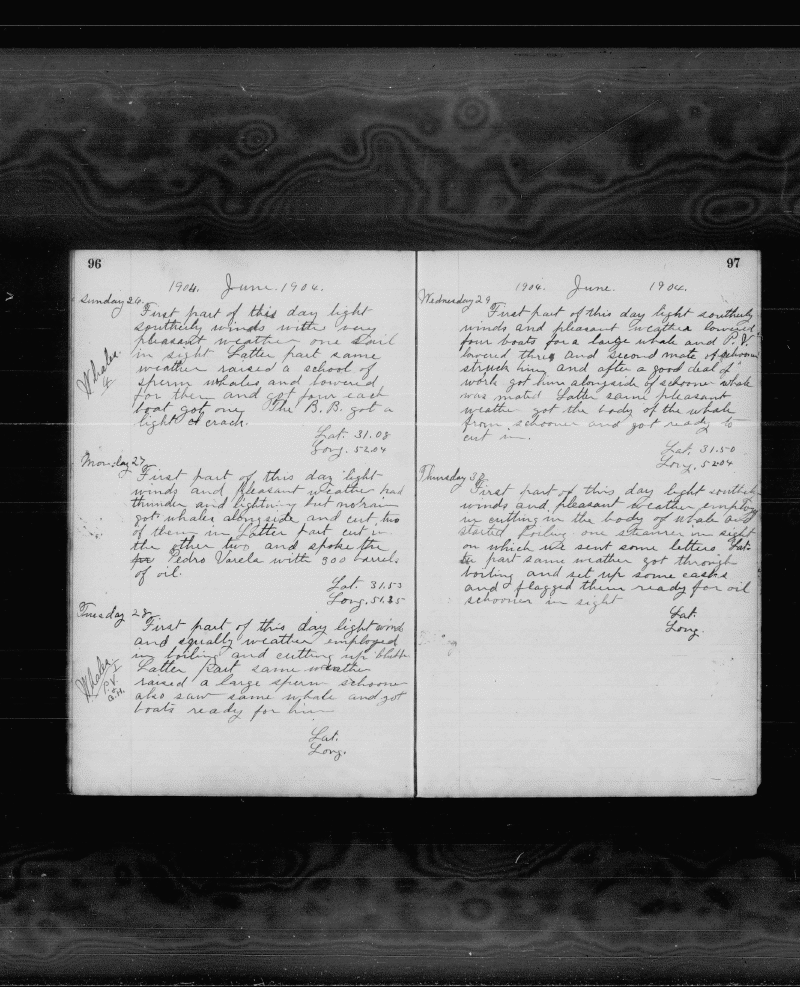 96
1904. June. 1904.
Sunday 26.
First part of this day light
southerly winds with very
pleasant weather one sail
in sight Latter part same
weather raised a school of
sperm whales and lowered
for them and got four each
boat got one The B.B. got a
light crack.
Whales.
4
Lat. 31.08
Long. 52.04
Monday 27
First part of this day light
winds and pleasant weather had
thunder and lightning but no rain
got whales alongside and cut two
of them in Latter part cut in
the other two and spoke the
Pedro Varela with 300 barrels
of oil.
Lat. 31.53
Long. 51.35
Tuesday 28
First part of this day light wind
and squally weather employed
in boiling and cutting up blubber
Latter part same weather
raised a large sperm schooner
also saw same whale and got
boats ready for him
Whales
P.V.
Lat.
Long.
97
1904. June. 1904.
Wednesday 29
First part of this day light southerly
winds and pleasant weather lowered
four boats for a large whale and P.V.
lowered three and second mate of schooner
struck him and after a good deal of
work got him alongside of schooner whale
was mated Latter same pleasant
weather got the body of the whale
from schooner and got ready to
cut in.
Lat. 31.50
Long. 52.04
Thursday 30
First part of this day light southerly
winds and pleasant weather employ
in cutting in the body of whale and
started boiling one steamer in sight
on which we sent some letters Lat-
ter part same weather got through
boiling and set up some casks
and flagged them ready for oil
schooner in sight
Lat.
Long.